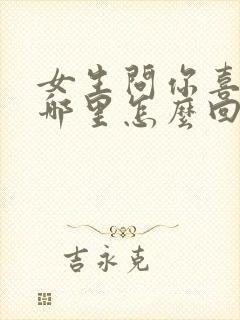 女生問你喜
哪里怎麼回
吉永克